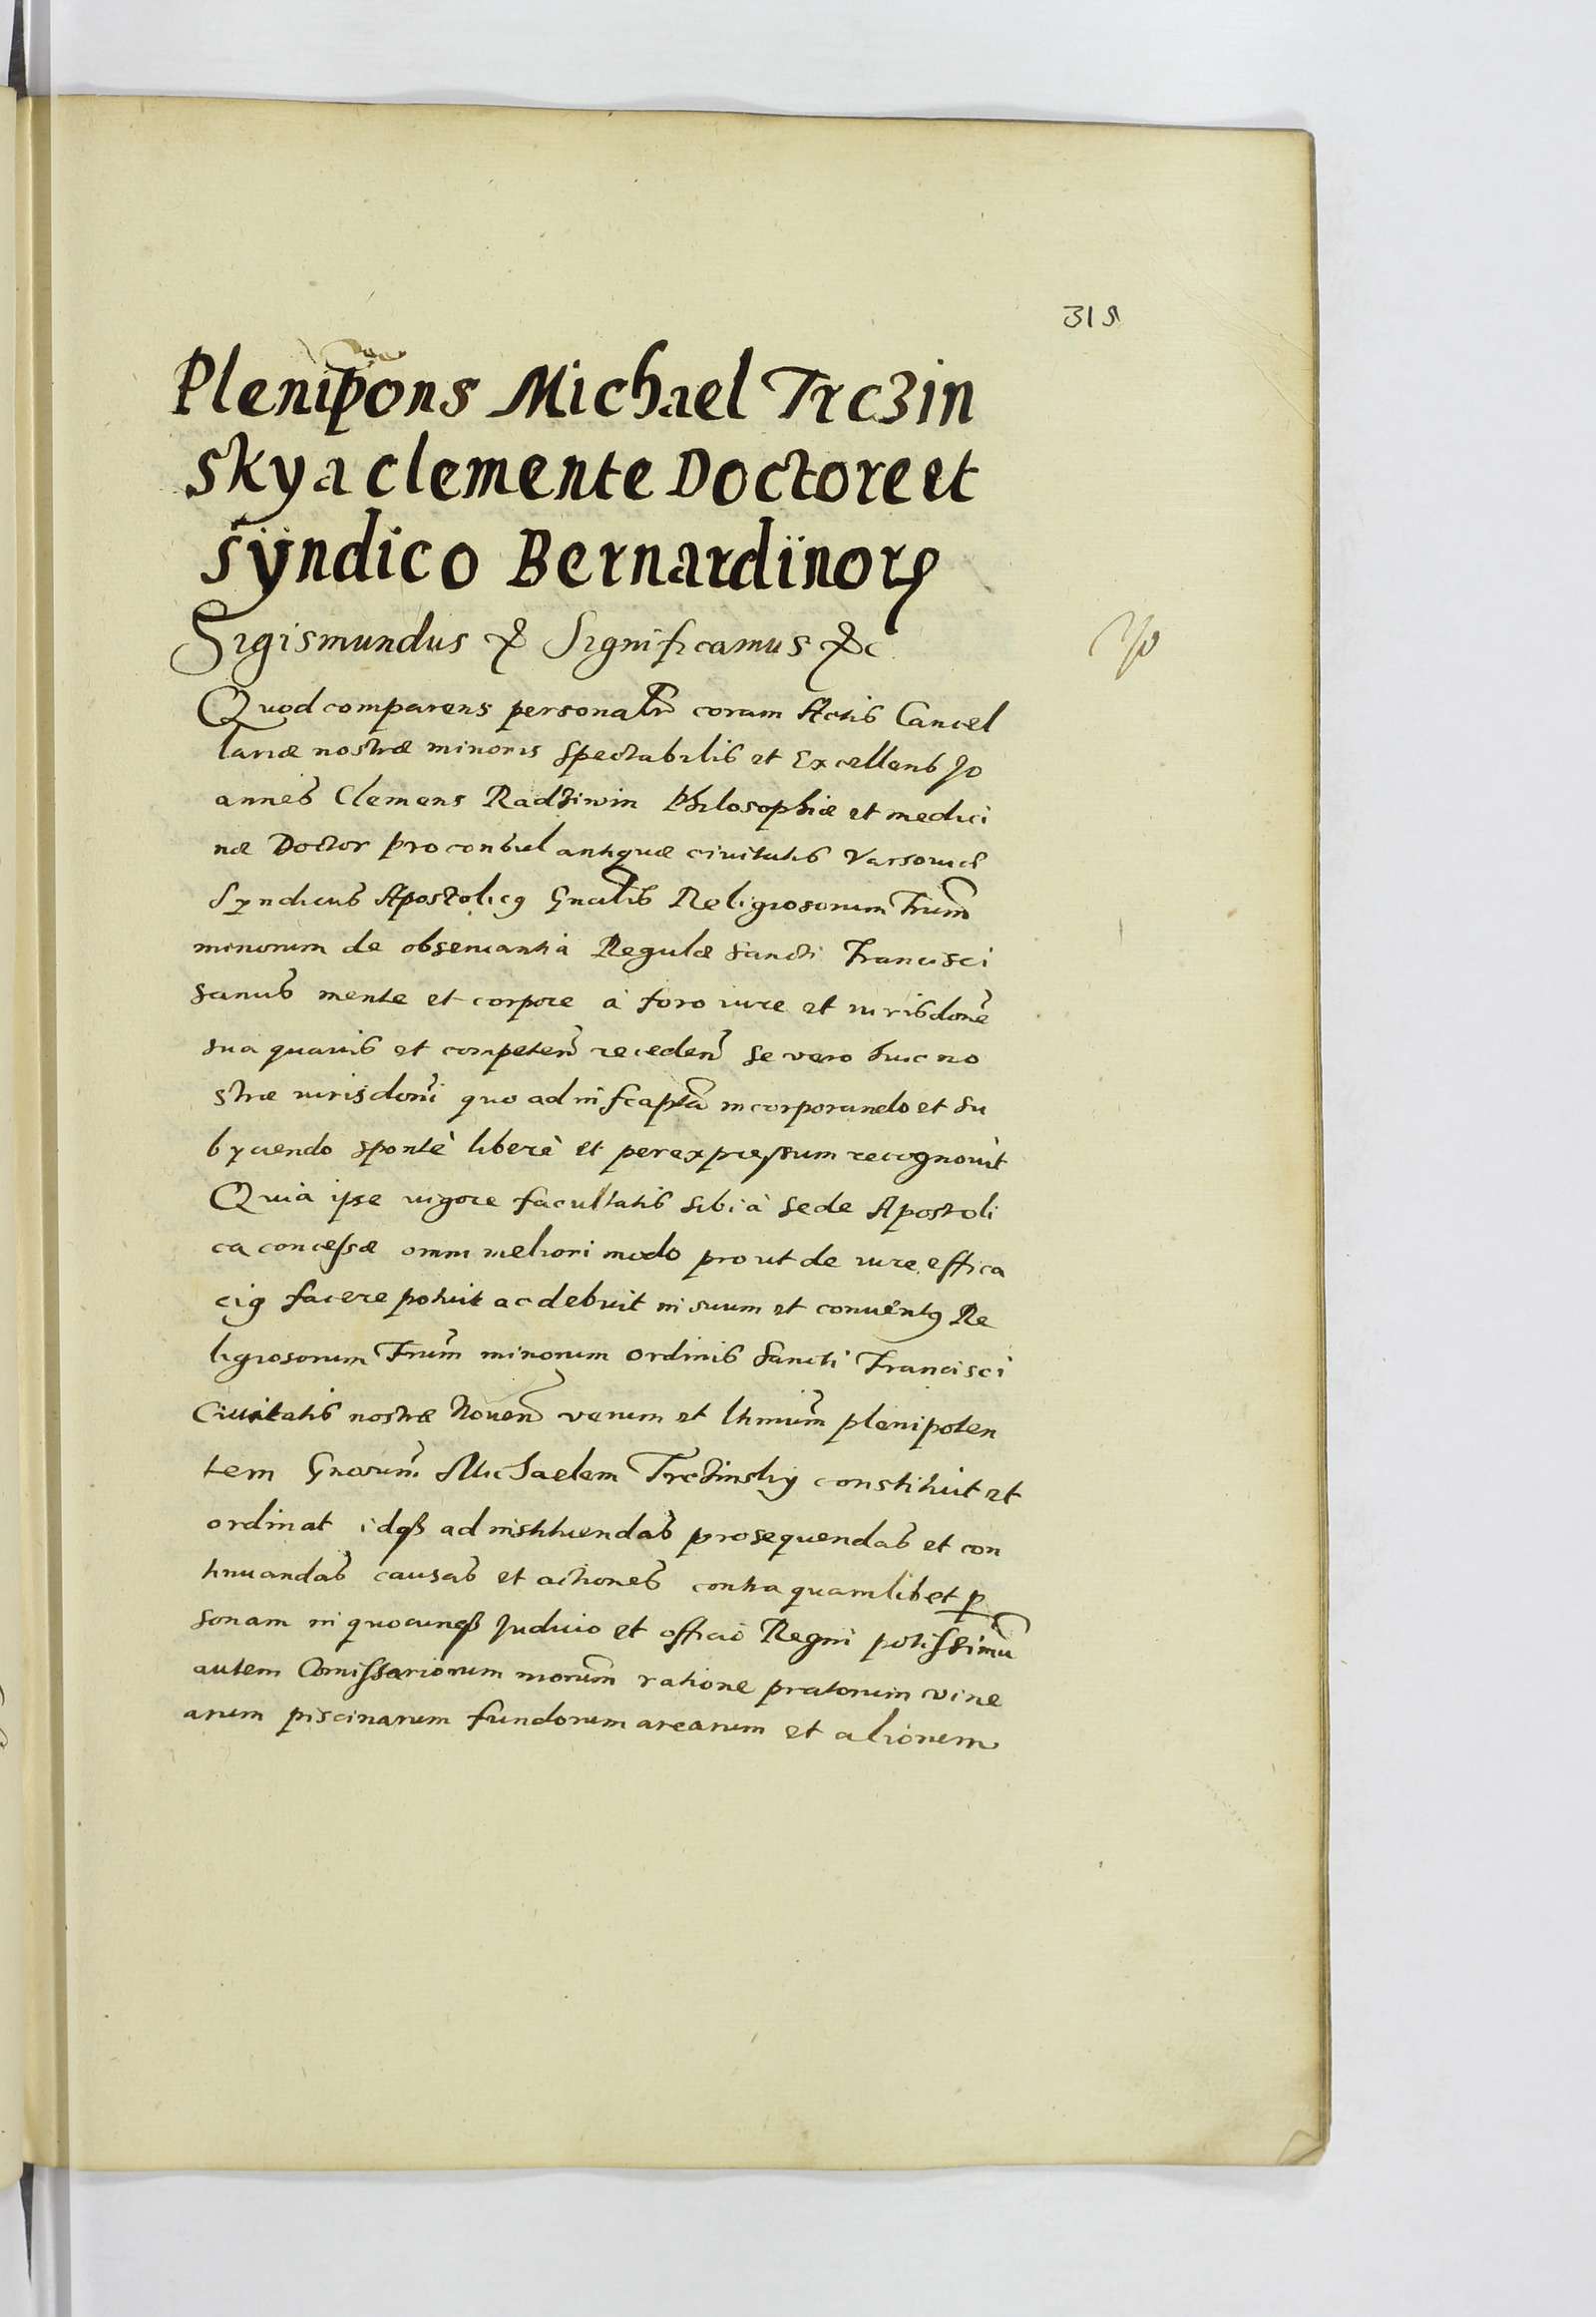 315
Plenipons Michael Trczin
sky a clemente Doctore et
syndico Bernardinorꝝ
Sigismundus &c Significamus &c
Quod comparens personalr coram Actis Cancel
lariæ nostræ minoris Spectabilis et Excellens Jo
annes Clemens Radziwin Philosophiæ et medici
næ Doctor proconsul antiquæ civitatis Varsovien
Syndicus Apostolicꝰ Gnalis Religiosorum Frum
minorum de observantia Regulæ Sancti Francisci
sanus mente et corpore à foro iure et iurisdone
sua quavis et competen receden se vero huic no
stræ iurisdoni quo ad infrapta incorporando et su
byciendo spontè liberè et per expressum recognovit
Quià ipse vigore facultatis sibi à Sede Apostoli
ca concessæ omni meliori modo prout de iure effica
ciꝰ facere potuit ac debuit in suum et conventꝰ Re
ligiosorum Frum minorum ordinis Sancti Francisci
Civitatis nostræ Noven verum et lhmum plenipoten
tem Gnosum Michaelem Trczinsky constituit et
ordinat idqꝫ ad instituendas prosequendas et con
tinuandas causas et actiones contra quamlibet ꝑ
sonam in quocunqꝫ Judicio et officio Regni potissimu
autem Comissariorum nrorum ratione pratorum vine
arum piscinarum fundorum arearum et aliorum